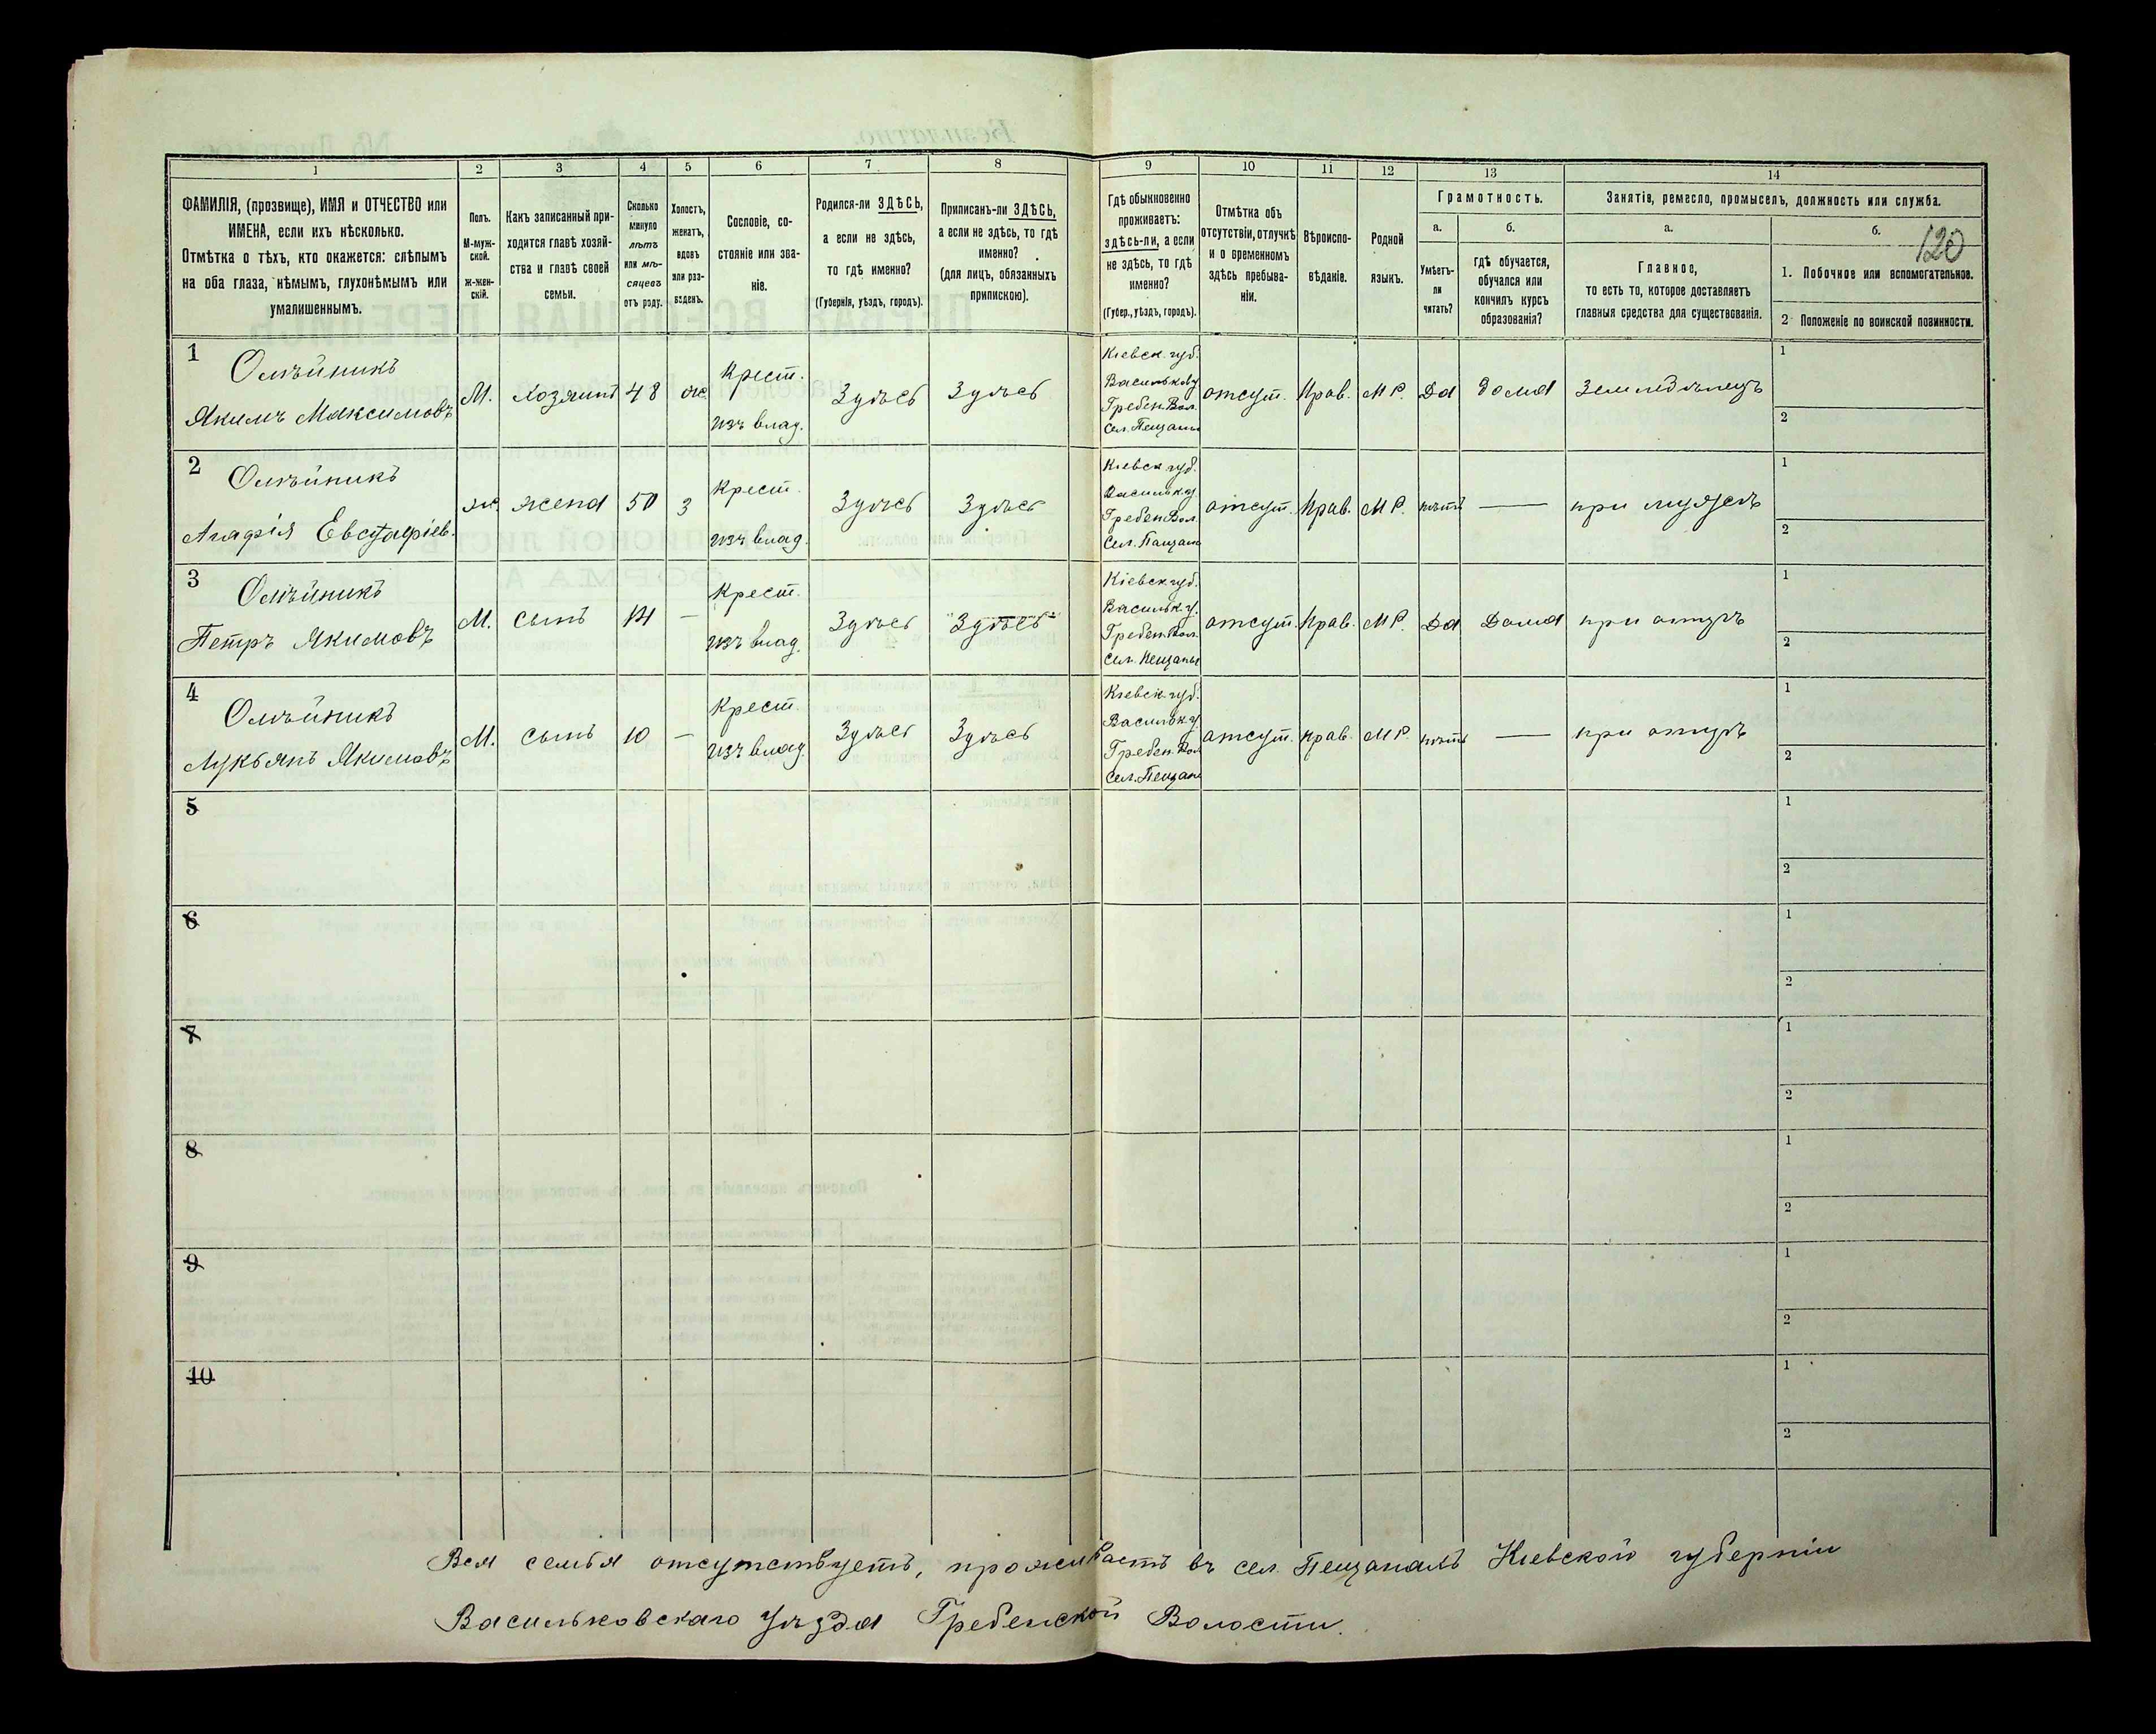 1 2 3 4 5 6 7 8 9 10 11 12 13 14
ФАМИЛІЯ, (прозвище), ИМЯ и ОТЧЕСТВО или
ИМЕНА, если ихъ нѣсколько.
Отмѣтка о тѣхъ, кто окажется: слѣпымъ
на оба глаза, нѣмымъ, глухонѣмымъ или
умалишеннымъ.
Полъ.
М-муж-
ской.
ж-жен-
скій.
Какъ записанный при-
ходится главѣ хозяй-
ства и главѣ своей
семьи.
Сколько
минуло
лѣтъ
или мѣ-
сяцевъ
отъ роду.
Холостъ,
женатъ,
вдовъ
или раз-
веденъ.
Сословіе, со-
стояніе или зва-
ніе.
Родился-ли ЗДѢСЬ,
а если не здѣсь,
то гдѣ именно?
(Губернія, уѣздъ, городъ).
Приписанъ-ли ЗДѢСЬ,
а если не здѣсь, то гдѣ
именно?
(для лицъ, обязанныхъ
припискою).
Гдѣ обыкновенно
проживаетъ:
здѣсь-ли, а если
не здѣсь, то гдѣ
именно?
(Губер., уѣздъ, городъ).
Отмѣтка объ
отсутствіи, отлучкѣ
и о временномъ
здѣсь пребыва-
ніи.
Вѣроиспо-
вѣданіе.
Родной
языкъ.
Грамотность.
а.
Умѣетъ-
ли
читать?
б.
гдѣ обучается,
обучался или
кончилъ курсъ
образованія?
Занятіе, ремесло, промыселъ, должность или служба.
а.
Главное,
то есть то, которое доставляетъ
главныя средства для существованія.
б.
120
1. Побочное или вспомогательное.
2 Положеніе по воинской повинности.
1
Олѣйникъ
Якимъ Максимовъ
М. хозяинъ 48 ж.
Крест.
изъ влад.
Здѣсь Здѣсь
Кіевск. губ.
Васильков у
Гребен. Вол.
Сел. Пещаны
отсут. Прав. М Р. Да дома земледѣлецъ
1
2
2
Олѣйникъ
Агафія Евстафіев.
ж. жена 50 з
Крест.
изъ влад.
Здѣсь Здѣсь
Кіевск губ.
Васильк.у.
Гребен Вол.
Сел. Пещаны
отсут. Прав. М Р. нѣтъ — при мужѣ
1
2
3
Олѣйникъ
Петръ Якимовъ
М. сынъ 14 —
Крест.
изъ влад.
Здѣсь Здѣсь
Кіевск губ.
Васильк. у.
Гребен. Вол.
Сел. Пещаны
отсут. Прав. М Р. Да Дома при отцѣ
1
2
4
Олѣйникъ
Лукьянъ Якимовъ
М. сынъ 10 —
Крест.
изъ влад.
Здѣсь Здѣсь
Кіевск губ.
Васильк у.
Гребен. Вол
Сел. Пещаны
отсут. Прав. М Р. нѣтъ — при отцѣ
1
2
5
1
2
6
1
2
7
1
2
8
1
2
9
1
2
10
1
2
Вся семья отсутствуетъ, проживаетъ въ сел. Пещанахъ Кіевской губерніи
Васильковскаго Уѣзда Гребенской Волости.